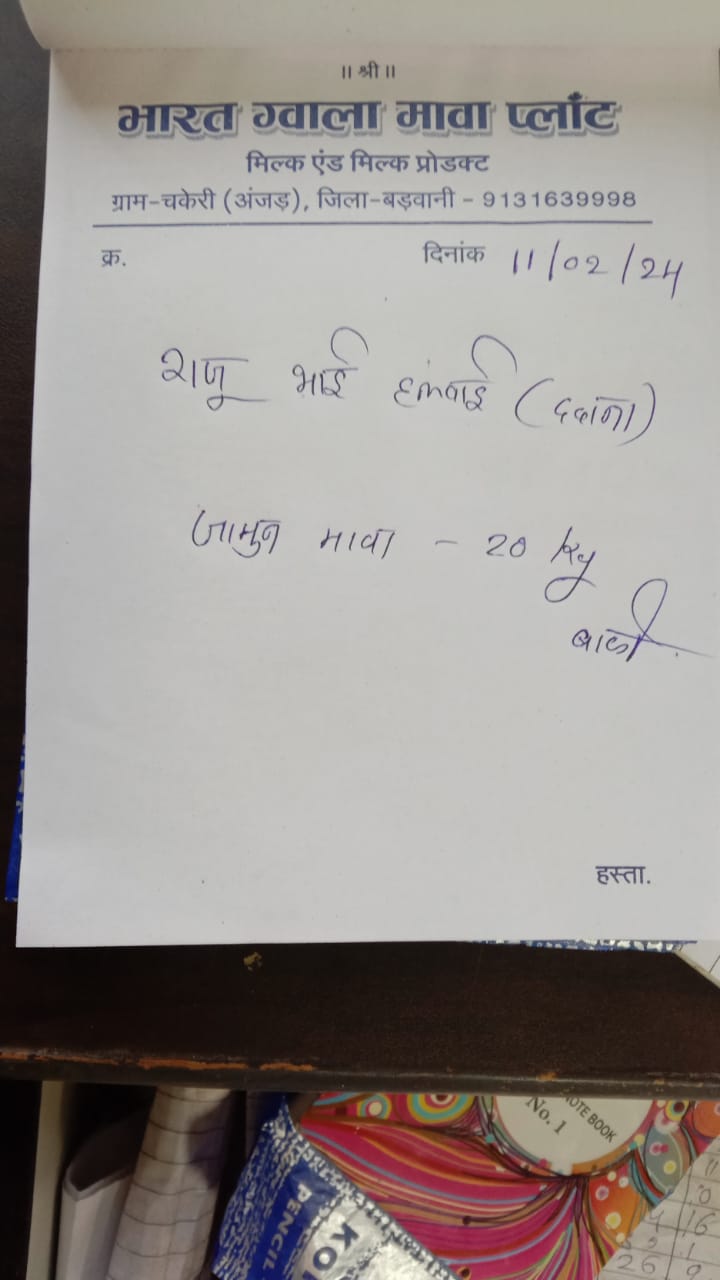 ॥ श्री ॥
भारत ग्वाला मावा प्लाँट
मिल्क एंड मिल्क प्रोडक्ट
ग्राम-चकेरी (अंजड़), जिला-बड़वानी - 9131639998
क्र. दिनांक 11/02/24
राजु भाई हलवाई
जामुन मावा - 20 kg
बाकी
हस्ता.
NOTE BOOK
No. 1
PENCIL
KO
16
26